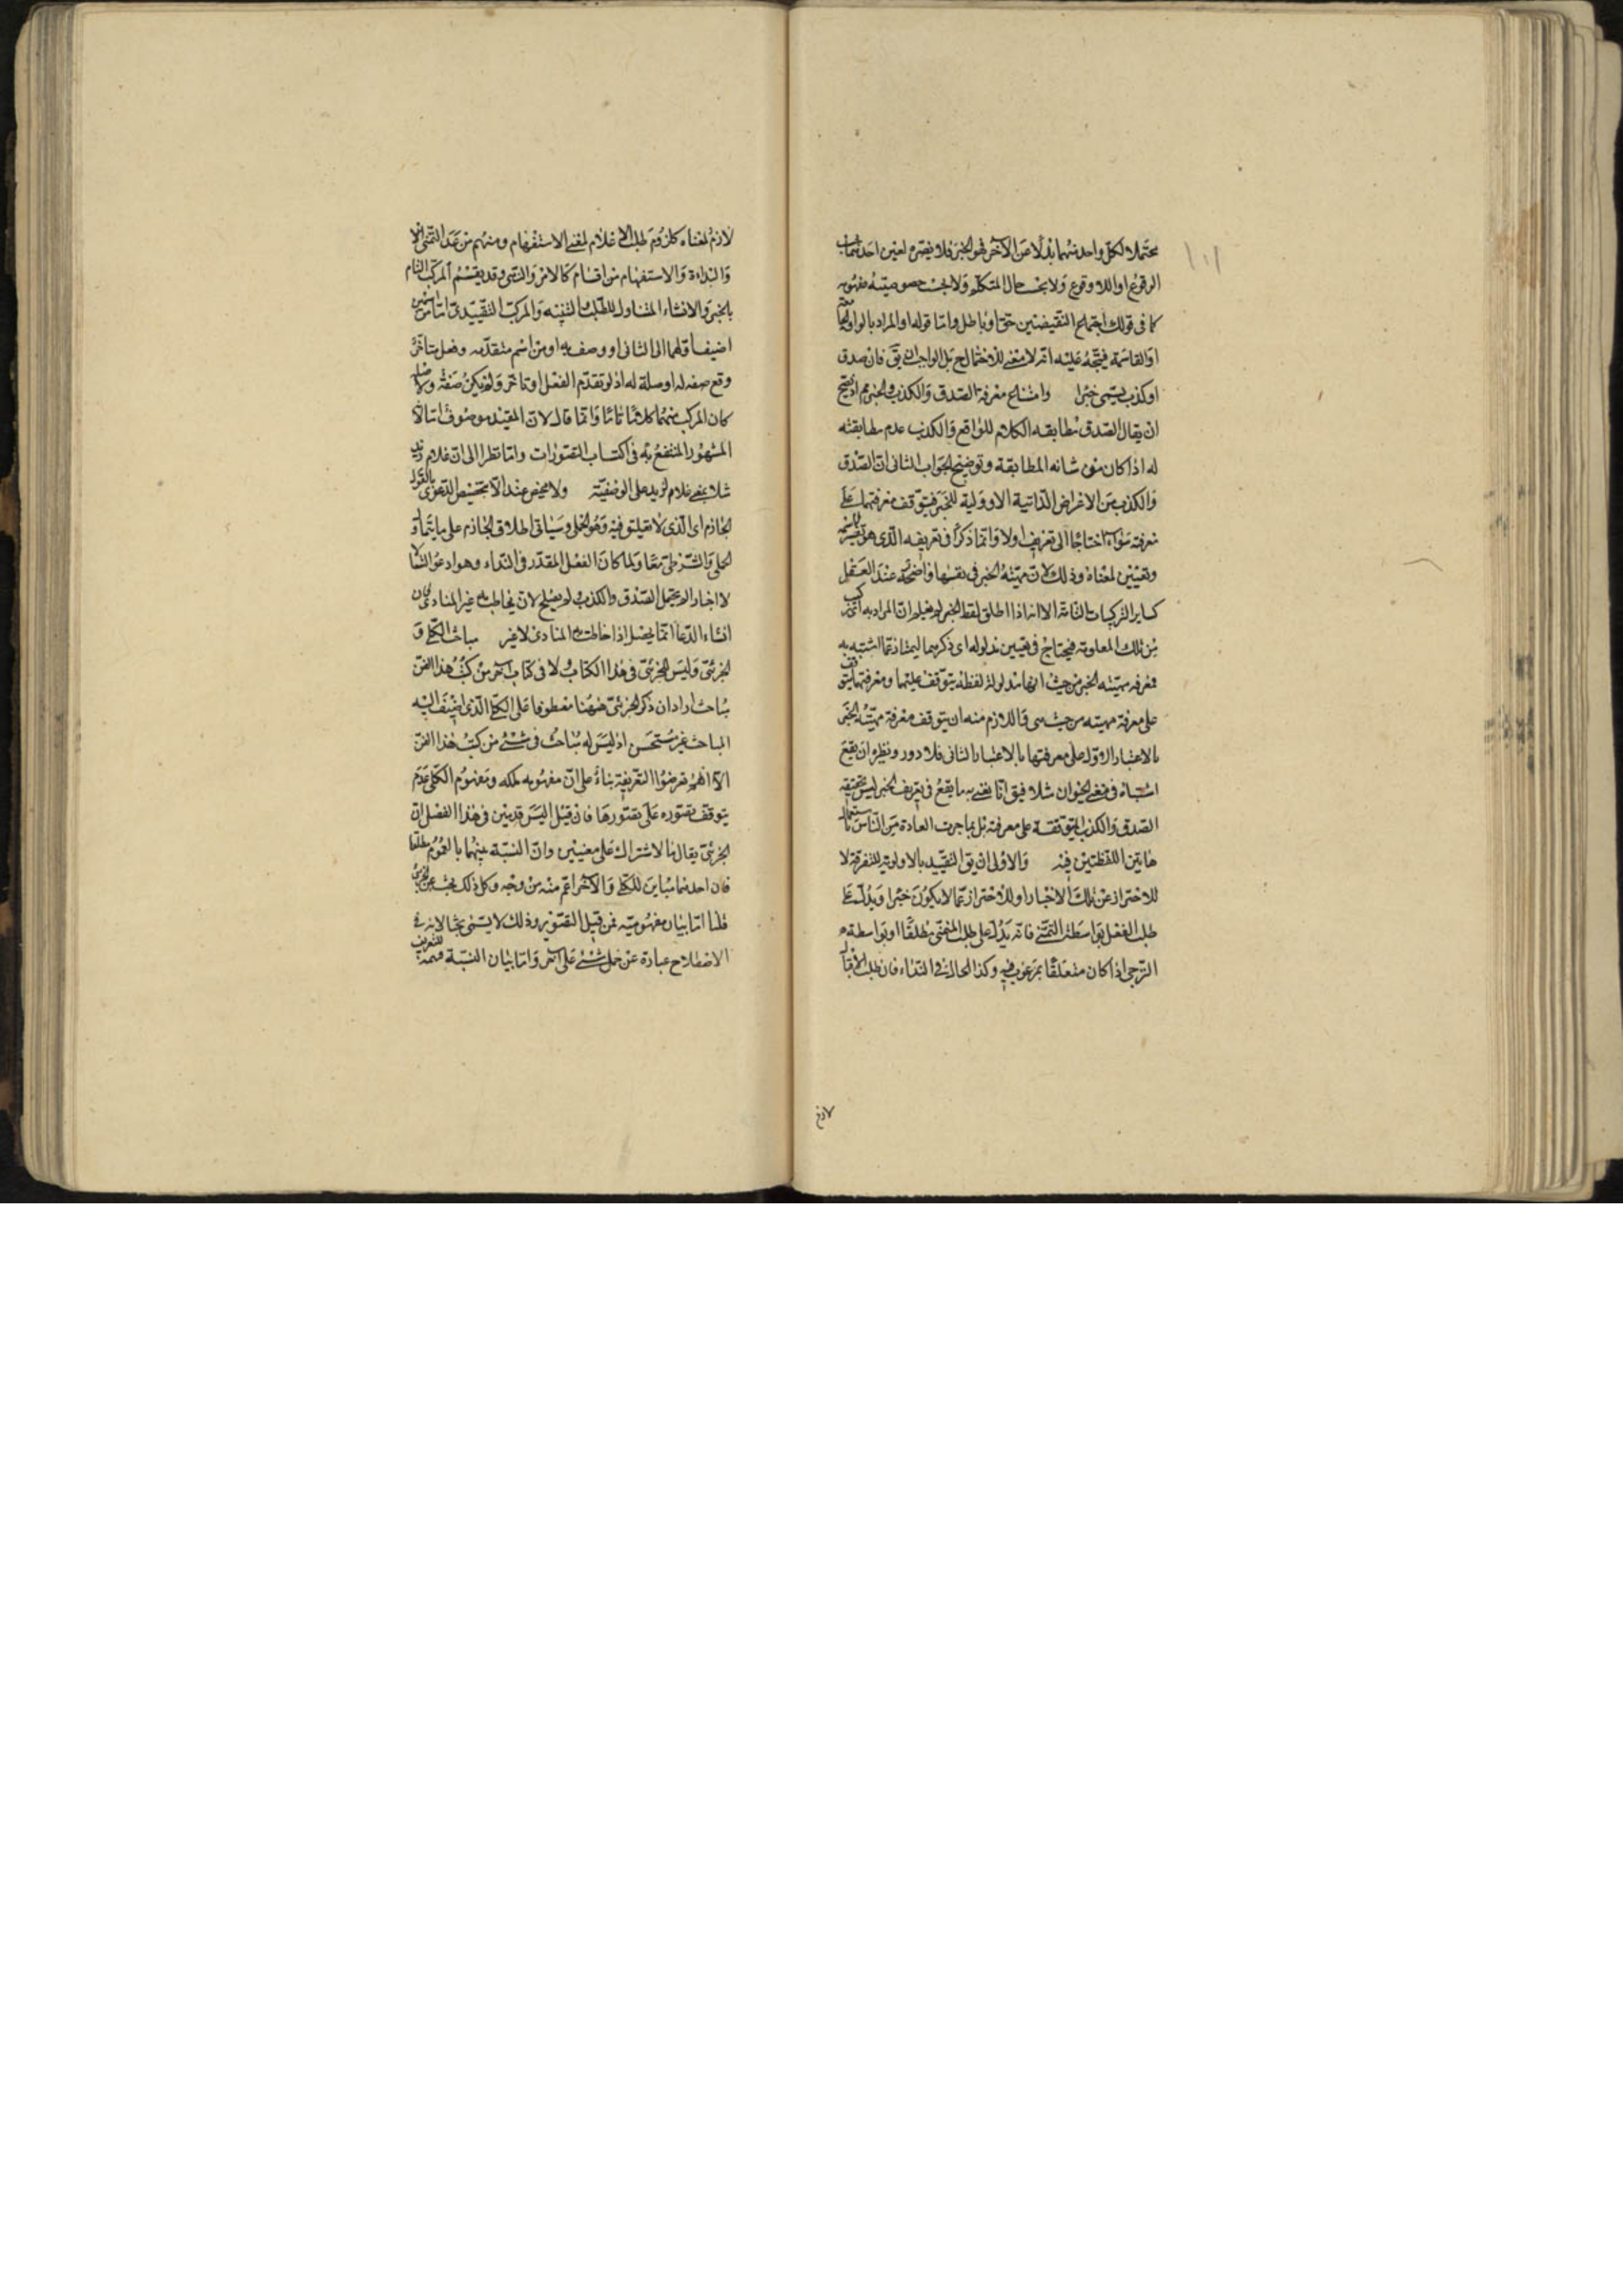 محتملا لكل واحد منهما بدلا عن الآخر فهو الخبر فلا يضره لعين احدهما
الوقوع او اللاوقوع ولا بحسب حال المتكلم ولا بحسب خصوصية مفهومه
كما فى قولك اجتماع النقيضين حق او باطل واما قوله او المراد بالواو
او القاسمة فيتجه عليه انه لا معنى للاحتمال ح بل الواجب ان يق فان صدق
او كذب يسمى خبرا وامتناع معرفة الصدق والكذب بالخبر مم اذ يصح
ان يقال الصدق مطابقه الكلام للواقع والكذب عدم مطابقته
له اذا كان من شانه المطابقة وتوضيح الجواب الثانى ان الصدق
والكذب من الاعراض الذاتية الاولية للخبر فيتوقف معرفتهما على
معرفته سواء احتاجا الى تعريف اولا وانما ذكرا فى تعريفه الذى هو تفسير اسمه
وتعيين لمعناه وذلك لان مهيته الخبر فى نفسها واضحة عند العقل
كساير التركيبات التامة الا انه اذا اطلق لفظ الخبر لم يعلم ان المراد به اى مركب
من تلك المعلومة فيحتاج فى تعيين مدلوله اى ذكرهما ليمتاز عما اشتبه به
فمعرفه مهيته الخبر من حيث انها مدلولة لفظه يتوقف عليهما ومعرفتهما يتوقف
على معرفة مهيته من حيث هى فاللازم منه ان يتوقف معرفة مهيته الخبر
بالاعتبار الاول على معرفتها بالاعتبار الثانى فلا دور ونظيره ان يقع
اشتباه فى معنى الحيوان مثلا فيق انا نعنى به ما يقع فى تعريف الخبر ليس بحقيقة
الصدق والكذب المتوقفة على معرفته بل بما جرت العادة من الناس باستعمال
هاتين اللفظتين فيه والاولى ان يق التقييد بالاولوية للتفرقة لا
للاحتراز عن تلك الاخبار او للاحتراز عما لا يكون خبرا ويدل على
طلب الفعل بواسطة التمنى فانه يدل على طلب المتمنى مطلقا او بواسطة
الترجى اذا كان متعلقا بمرغوب فيه وكذا الحال فى النداء فان طلب الاقبال
لازم
لازم لمعناه كلزوم طلب الاعلام لمعنى الاستفهام ومنهم من عد التمنى
والنداءة والاستفهام من اقسام كالامر والنهى وقد يقسم المركب التام
بالخبر والانشاء المتناول للطلب والتنبيه والمركب التقييدى اما من اسمين
اضيف اولهما الى الثانى او وصف به او من اسم متقدم وفعل متاخر
وقع صفه له او صلة له اذ لو تقدم الفعل او تاخر ولم يكن صفة ولا صلة
كان المركب منهما كلاما تاما وانما قال لان المقيد موصوف
المشهور المنتفع به فى اكتساب التصورات واما نظرا الى ان غلام زيد
مثلا بمعنى غلام لزيد على الوصفية ولا محيص عند الا تخصيص الدعوى بالقول
الجازم اى الذى لا تعليق فيه وهو الحملى وسياتى اطلاق الجازم على ما يتناول
الحملى والشرطى معا ولما كان الفعل المقدر فى النداء وهو ادعو انشاء
لا اخبارا لم يحتمل الصدق والكذب ولم يصلح لان يخاطب به غير المنادى فان
انشاء الدعا انما يحصل اذا خاطب به المنادى لا غير مباحث الكلى و
الجزئى وليس للجزئى فى هذا الكتاب ولا فى كتاب آخر من كتب هذا الفن
مباحث اراد ان ذكر الجزئى ههنا معطوفا على الكلى الذى اضيف اليه
المباحث غير مستحسن اذ ليس له مباحث فى شئ من كتب هذا الفن
الا انهم تعرضوا التعريفه بناء على ان مفهومه ملكه ومفهوم الكلى عدم
يتوقف تصوره على تصورها فان قيل اليس قد بين فى هذا الفصل ان
الجزئى يقال بالاشتراك على معنيين وان النسبة بينهما بالعموم مطلقا
فان احدهما مباين للكلى والآخر اعم منه من وجه وكل ذلك بحث عن الجزئى
قلنا اما بيان مفهوميه فمن قبيل التصوير وذلك لا يسمى بحثا لانه فى
الاصطلاح عبارة عن حمل شئ على آخر واما بيان النسبة فتتمة للتعريف